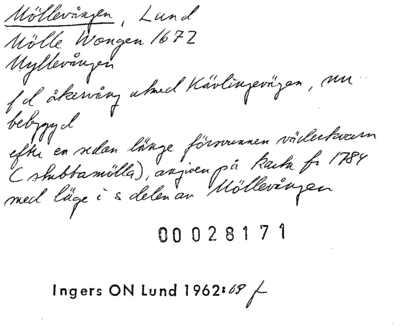 Möllevången, Lund
Mölle Wongen 1672
Myllevången
f d åkervång utmed Kävlingevägen, nu
bebyggd
efter en sedan länge försvunnen väderkvarn
(stubbamölla), angiven på karta fr 1784
med läge i s delen av Möllevången
00028171
Ingers ON Lund 1962:69 f